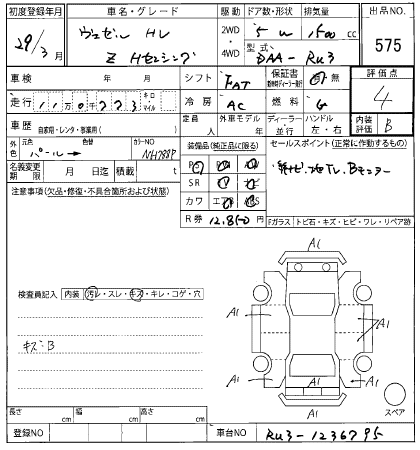 初度登録年月 車名・グレード 駆動 ドア数・形状 排気量 出品NO.
29年 3月 ヴェゼル Z Hセンシング 2WD・4WD 5 W 1500 cc 575
型式 DAA- RU3
車検 年 月 シフト FAT 保証書 有 無 評価点 4
走行 11万0千223 キロ マイル 冷房 AC 燃料 G
車歴 自家用・レンタ・事業用( ) 定員 人 外車モデル 年 ディーラー・並行 ハンドル 左・右 内装評価 B
外色 元色 パール → 色替 カラーNO NH788P 装備品(純正品に限る) セールスポイント(正常に作動するもの)
名義変更期限 月 日迄 積載 t P S P W
注意事項(欠品・修復・不具合箇所および状態) S R ナビ
カワ エアB
R券 12,850 Fガラス トビ石・キズ・ヒビ・ワレ・リペア跡
検査員記入 内装 汚レ・スレ・キズ・キレ・コゲ・穴
キズB
A1
A1
A1
A1
A1
A1
A1
スペア
長さ cm 幅 cm 高さ cm
登録NO 車台NO RU3-1236795